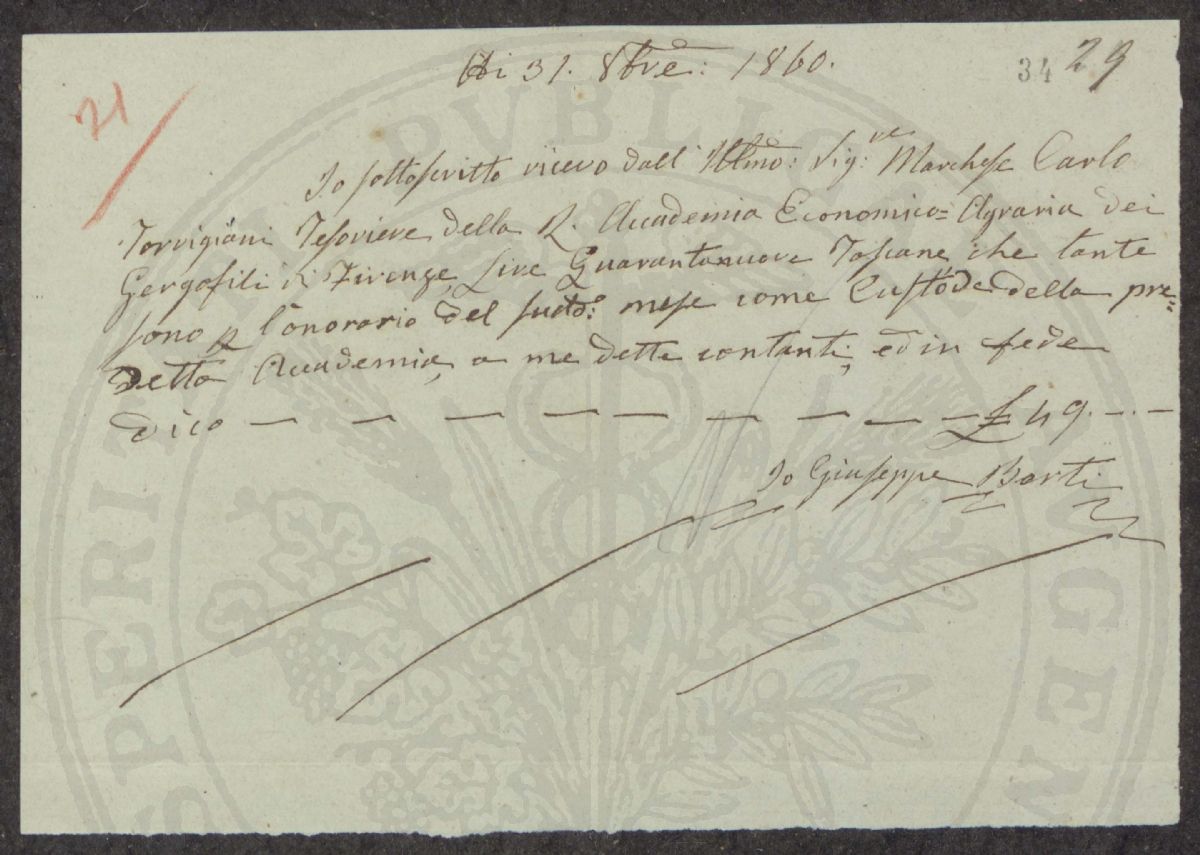 21
Adi 31. 8bre: 1860.
34 29
Io sottoscritto ricevo dall' Illmo: Sig:re Marchese Carlo
Torrigiani Tesoriere della R. Accademia Economico=Agraria dei
Gergofili di Firenze, Lire Quarantanuove Toscane, che tante
sono p l'onorario del sudto: mese come Custode della pre=
detta Accademia, a me dette contanti, ed in fede
dico — — — — — — — — — £ 49. — . —
Io Giuseppe Barti
PROSPERITATI PUBLICAE AUGENDAE